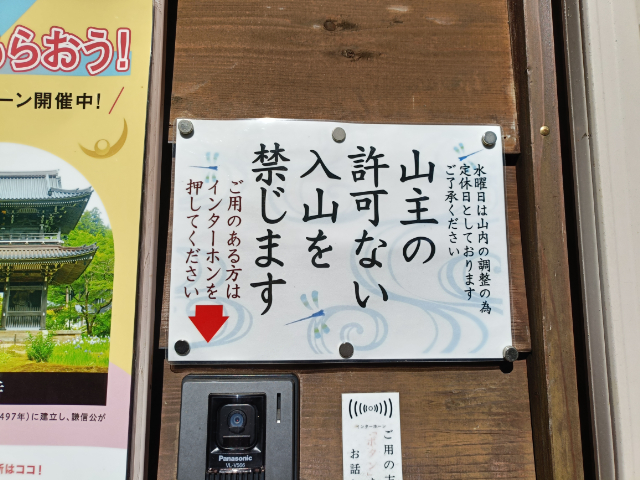 らおう!
ーン開催中!
497年)に建立し、謙信公が
所はココ!
水曜日は山内の調整の為
定休日としております
ご了承ください
山主の
許可ない
入山を
禁じます
ご用のある方は
インターホンを
押してください
Panasonic
VL-V566
インターホーン
ご用の方
ボタン
お話